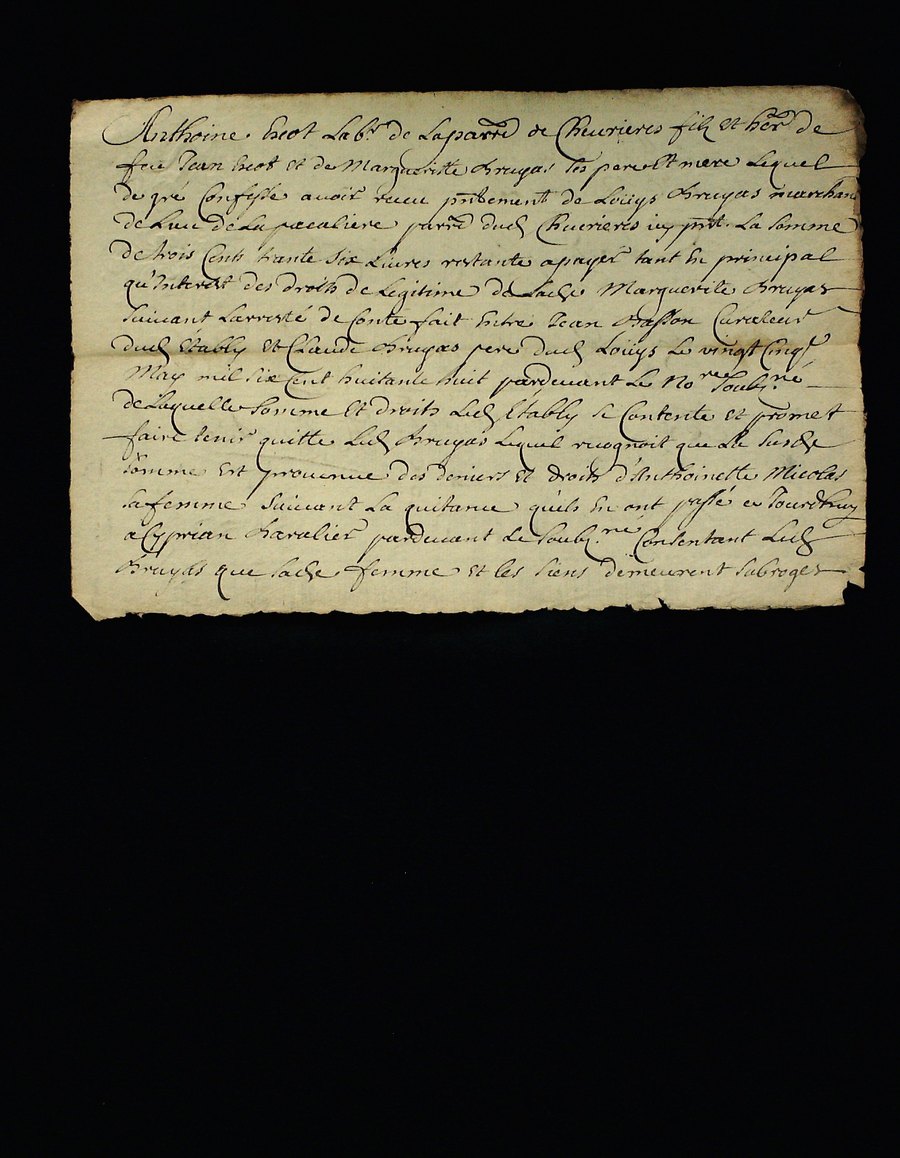 Anthoine Exot Labr de Laparre de Cheurieres filz et herr de
feu Jean Exot et de Margueritte Bruyas ses pere et mere Lequel
de gré Confesse auoir receu pntement de Loüys Bruyas marchand
de Lieu de La pacaliere parre dud Cheurieres icy pnt. La somme
de trois Cents trante six Liures restante apayer tant En principal
qu'Interest des droits de Legitime de Lade Marguerite Bruyas
Suiuant Larresté de Conte fait Entre Jean Basson Curateur
dud Etably et Claude Bruyas pere dud Loüys Le vingt Cinqe
May mil six Cent huitante huit pardeuant Le Nore soubz.né
de Laquelle somme et droits Led Etably se Contente et promet
faire tenir quitte Led Bruyas Lequel recognoit que La susde
somme est prouenue des deniers et droits d'Anthoinette Nicolas
sa femme Suiuant La quitance qu'ils En ont passé ce Jourdhuy
a Cyprian Chavalier pardeuant Le soubz.né Consentant Led
Bruyas que sade femme et les siens demeurent subroges